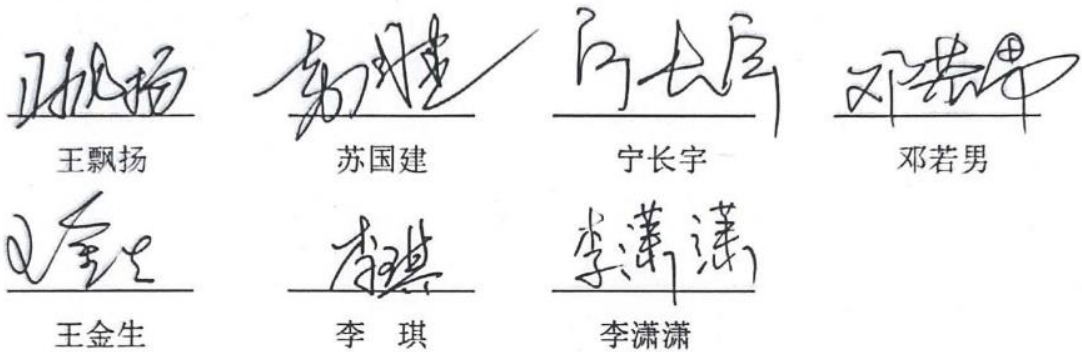 王飘扬 苏国建 宁长宇 邓若男
王金生 李琪 李潇潇
王飘扬 苏国建 宁长宇 邓若男
王金生 李 琪 李潇潇